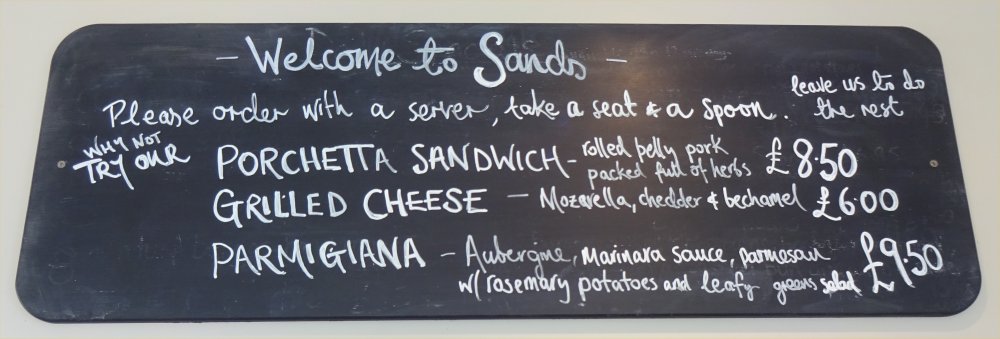 - Welcome to Sands -
Please order with a server, take a seat & a spoon. leave us to do
the rest
WHY NOT
TRY OUR
PORCHETTA SANDWICH - rolled belly pork
packed full of herbs £8.50
GRILLED CHEESE - Mozarella, chedder & bechamel £6.00
PARMIGIANA - Aubergine, Marinara sauce, parmesan
w/ rosemary potatoes and leafy greens salad £9.50